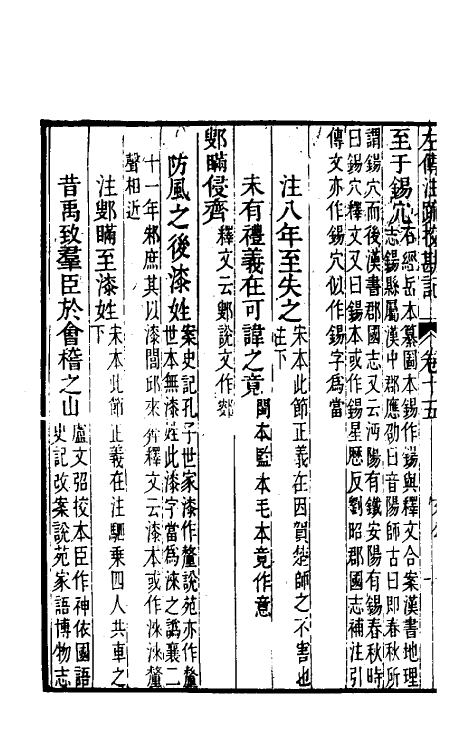 左傳注疏挍勘記 卷十五 十
至于錫穴 石經岳本纂圖本錫作鍚與釋文合案漢書地理
志錫縣屬漢中郡應劭曰音陽師古曰即春秋所
謂錫穴而後漢書郡國志又云沔陽有鐵安陽有錫春秋時
曰錫穴釋文又曰錫本或作錫星歷反劉昭郡國志補注引
傳文亦作錫穴似作錫字爲當
注八年至失之 宋本此節正義在因賀楚師之不害也
注下
未有禮義在可諱之竟 閩本監本毛本竟作意
鄋瞞侵齊 釋文云鄋說文作
防風之後漆姓 案史記孔子世家漆作釐說苑亦作釐
世本無漆姓此漆字當爲淶之譌襄二
十一年邾庶其以漆閭邱來奔釋文云漆本或作淶淶釐
聲相近
注鄋瞞至漆姓 宋本此節正義在注駟乘四人共車之
下
昔禹致羣臣於會稽之山 盧文弨挍本臣作神依國語
史記改案說苑家語博物志